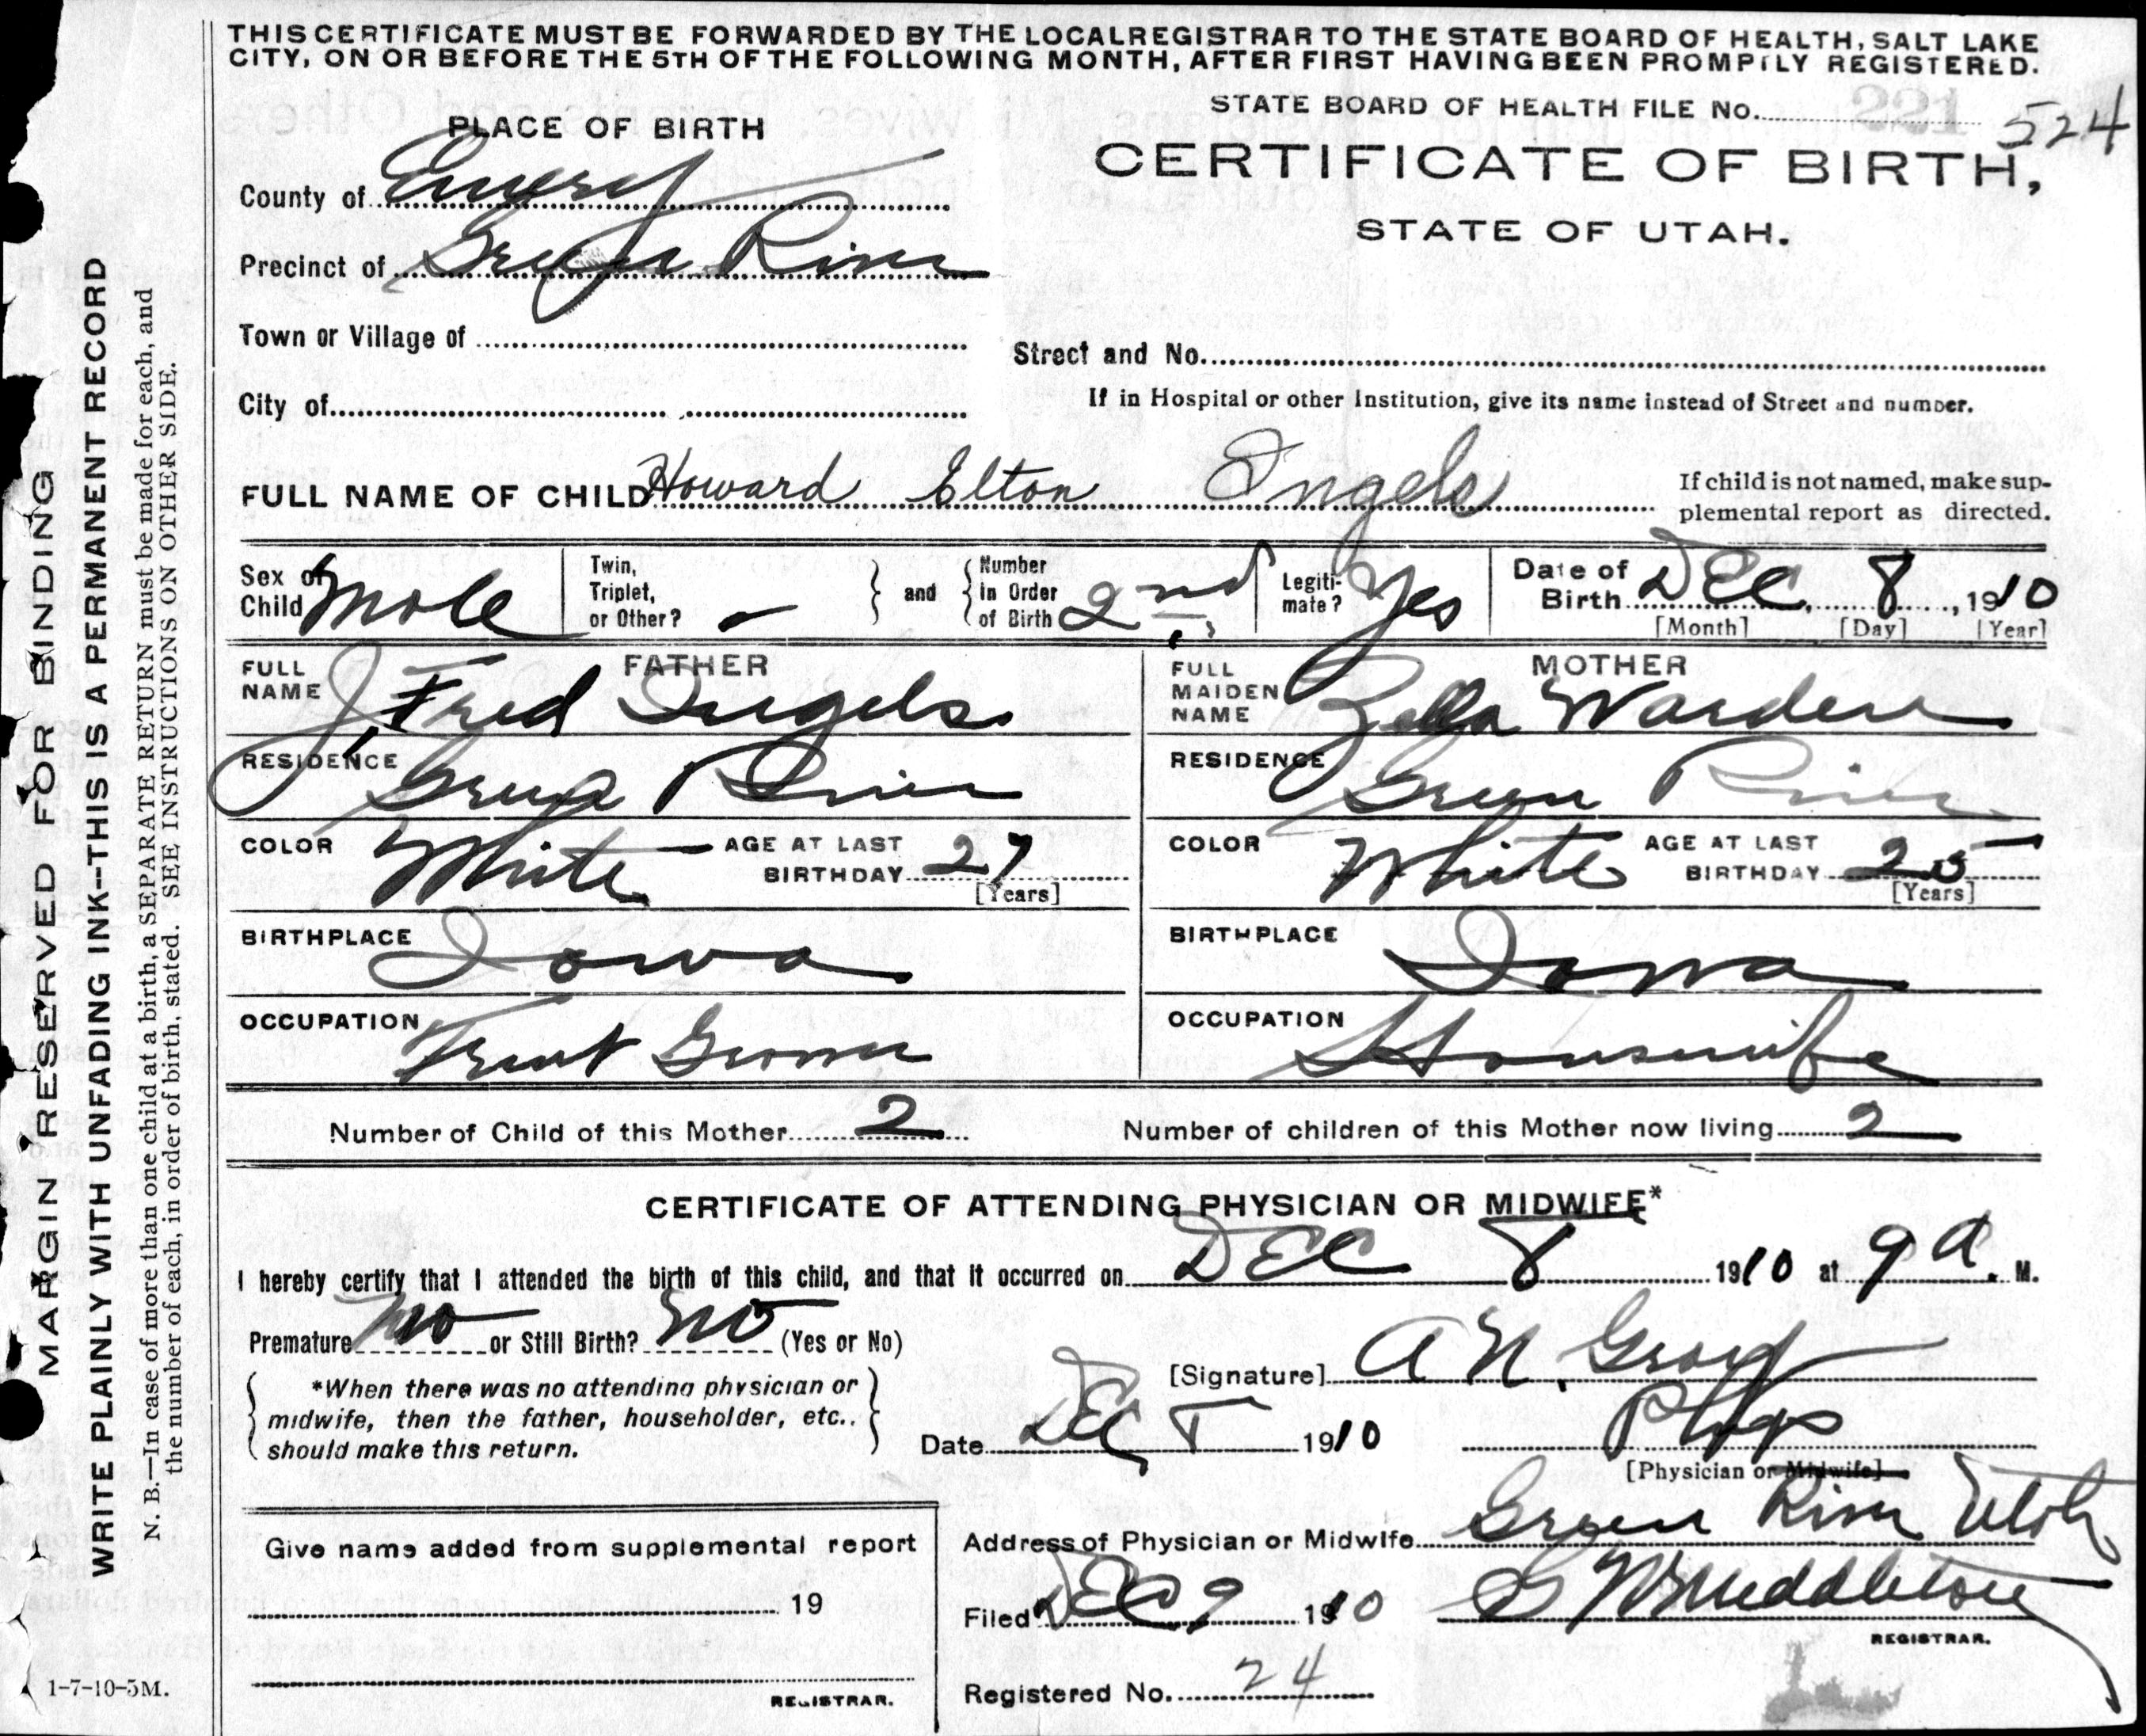 THIS CERTIFICATE MUST BE FORWARDED BY THE LOCAL REGISTRAR TO THE STATE BOARD OF HEALTH, SALT LAKE
CITY, ON OR BEFORE THE 5TH OF THE FOLLOWING MONTH, AFTER FIRST HAVING BEEN PROMPTLY REGISTERED.
STATE BOARD OF HEALTH FILE No. 221 524
PLACE OF BIRTH
CERTIFICATE OF BIRTH,
STATE OF UTAH.
County of Emery
Precinct of Green River
Town or Village of
Street and No.
City of
If in Hospital or other Institution, give its name instead of Street and number.
FULL NAME OF CHILD Howard Elton Ingels
If child is not named, make sup-
plemental report as directed.
Sex of Child Male
Twin, Triplet, or Other? -
and
Number in Order of Birth 2nd
Legiti-mate? Yes
Date of Birth DEC 8, 1910
[Month] [Day] [Year]
FATHER
FULL NAME J, Fred Ingels
RESIDENCE Green River
COLOR White AGE AT LAST BIRTHDAY 27
[Years]
BIRTHPLACE Iowa
OCCUPATION Fruit Grower
MOTHER
FULL MAIDEN NAME Zella Warden
RESIDENCE Green River
COLOR White AGE AT LAST BIRTHDAY 25
[Years]
BIRTHPLACE Iowa
OCCUPATION Housewife
Number of Child of this Mother 2 Number of children of this Mother now living 2
CERTIFICATE OF ATTENDING PHYSICIAN OR MIDWIFE*
I hereby certify that I attended the birth of this child, and that it occurred on DEC 8 1910 at 9 a. M.
Premature No or Still Birth? No (Yes or No)
*When there was no attending physician or
midwife, then the father, householder, etc.,
should make this return.
[Signature] A N.
Date Dec 1910
Phys
[Physician or Midwife]
Address of Physician or Midwife Green River Utah
Filed DEC 9 1910 Middleton
REGISTRAR.
Registered No. 24
Give name added from supplemental report
19
REGISTRAR.
MARGIN RESERVED FOR BINDING
WRITE PLAINLY WITH UNFADING INK—THIS IS A PERMANENT RECORD
N. B.—In case of more than one child at a birth, a SEPARATE RETURN must be made for each, and
the number of each, in order of birth, stated. SEE INSTRUCTIONS ON OTHER SIDE.
1-7-10-5M.